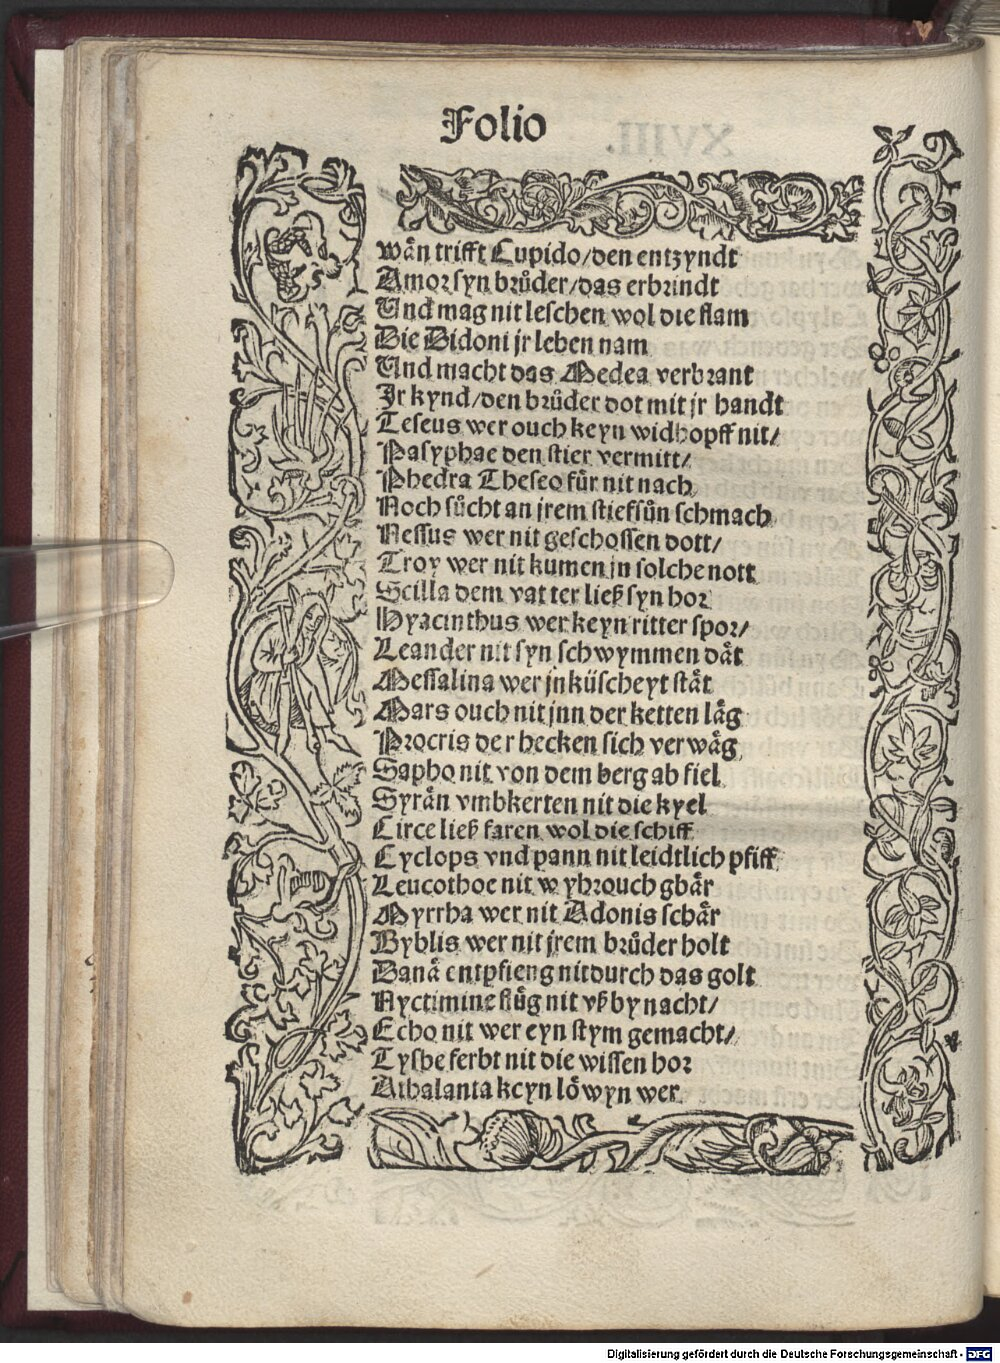 Folio
wån trifft Cupido/den entzyndt
Amor syn brůder/das erbrindt
Und mag nit leschen wol die flam
Die Didoni jr leben nam
Und macht das Medea verbrant
Jr kynd/den brůder dot mit jr handt
Teseus wer ouch keyn widhopff nit/
Pasyphae den stier vermitt/
Phedra Theseo für nit nach
Noch sůcht an jrem stiefsůn schmach
Nessus wer nit geschossen dott/
Troy wer nit kumen jn solche nott
Scilla dem vatter ließ syn hor
Hyacinthus wer keyn ritter spor/
Leander nit syn schwymmen dåt
Messalina wer jn küscheyt ståt
Mars ouch nit jnn der ketten låg
Procris der hecken sich verwåg
Sapho nit von dem berg ab fiel
Syrån vmbkerten nit die kyel
Circe ließ faren wol die schiff
Cyclops vnd pann nit leidtlich pfiff
Leucothoe nit wyhrouch gbår
Myrrha wer nit Adonis schår
Byblis wer nit jrem brůder holt
Danå entpfieng nit durch das golt
Nyctimine flůg nit vß by nacht/
Echo nit wer eyn stym gemacht/
Tysbe ferbt nit die wissen bor
Athalanta keyn löwyn wer
Digitalisierung gefördert durch die Deutsche Forschungsgemeinschaft - DFG